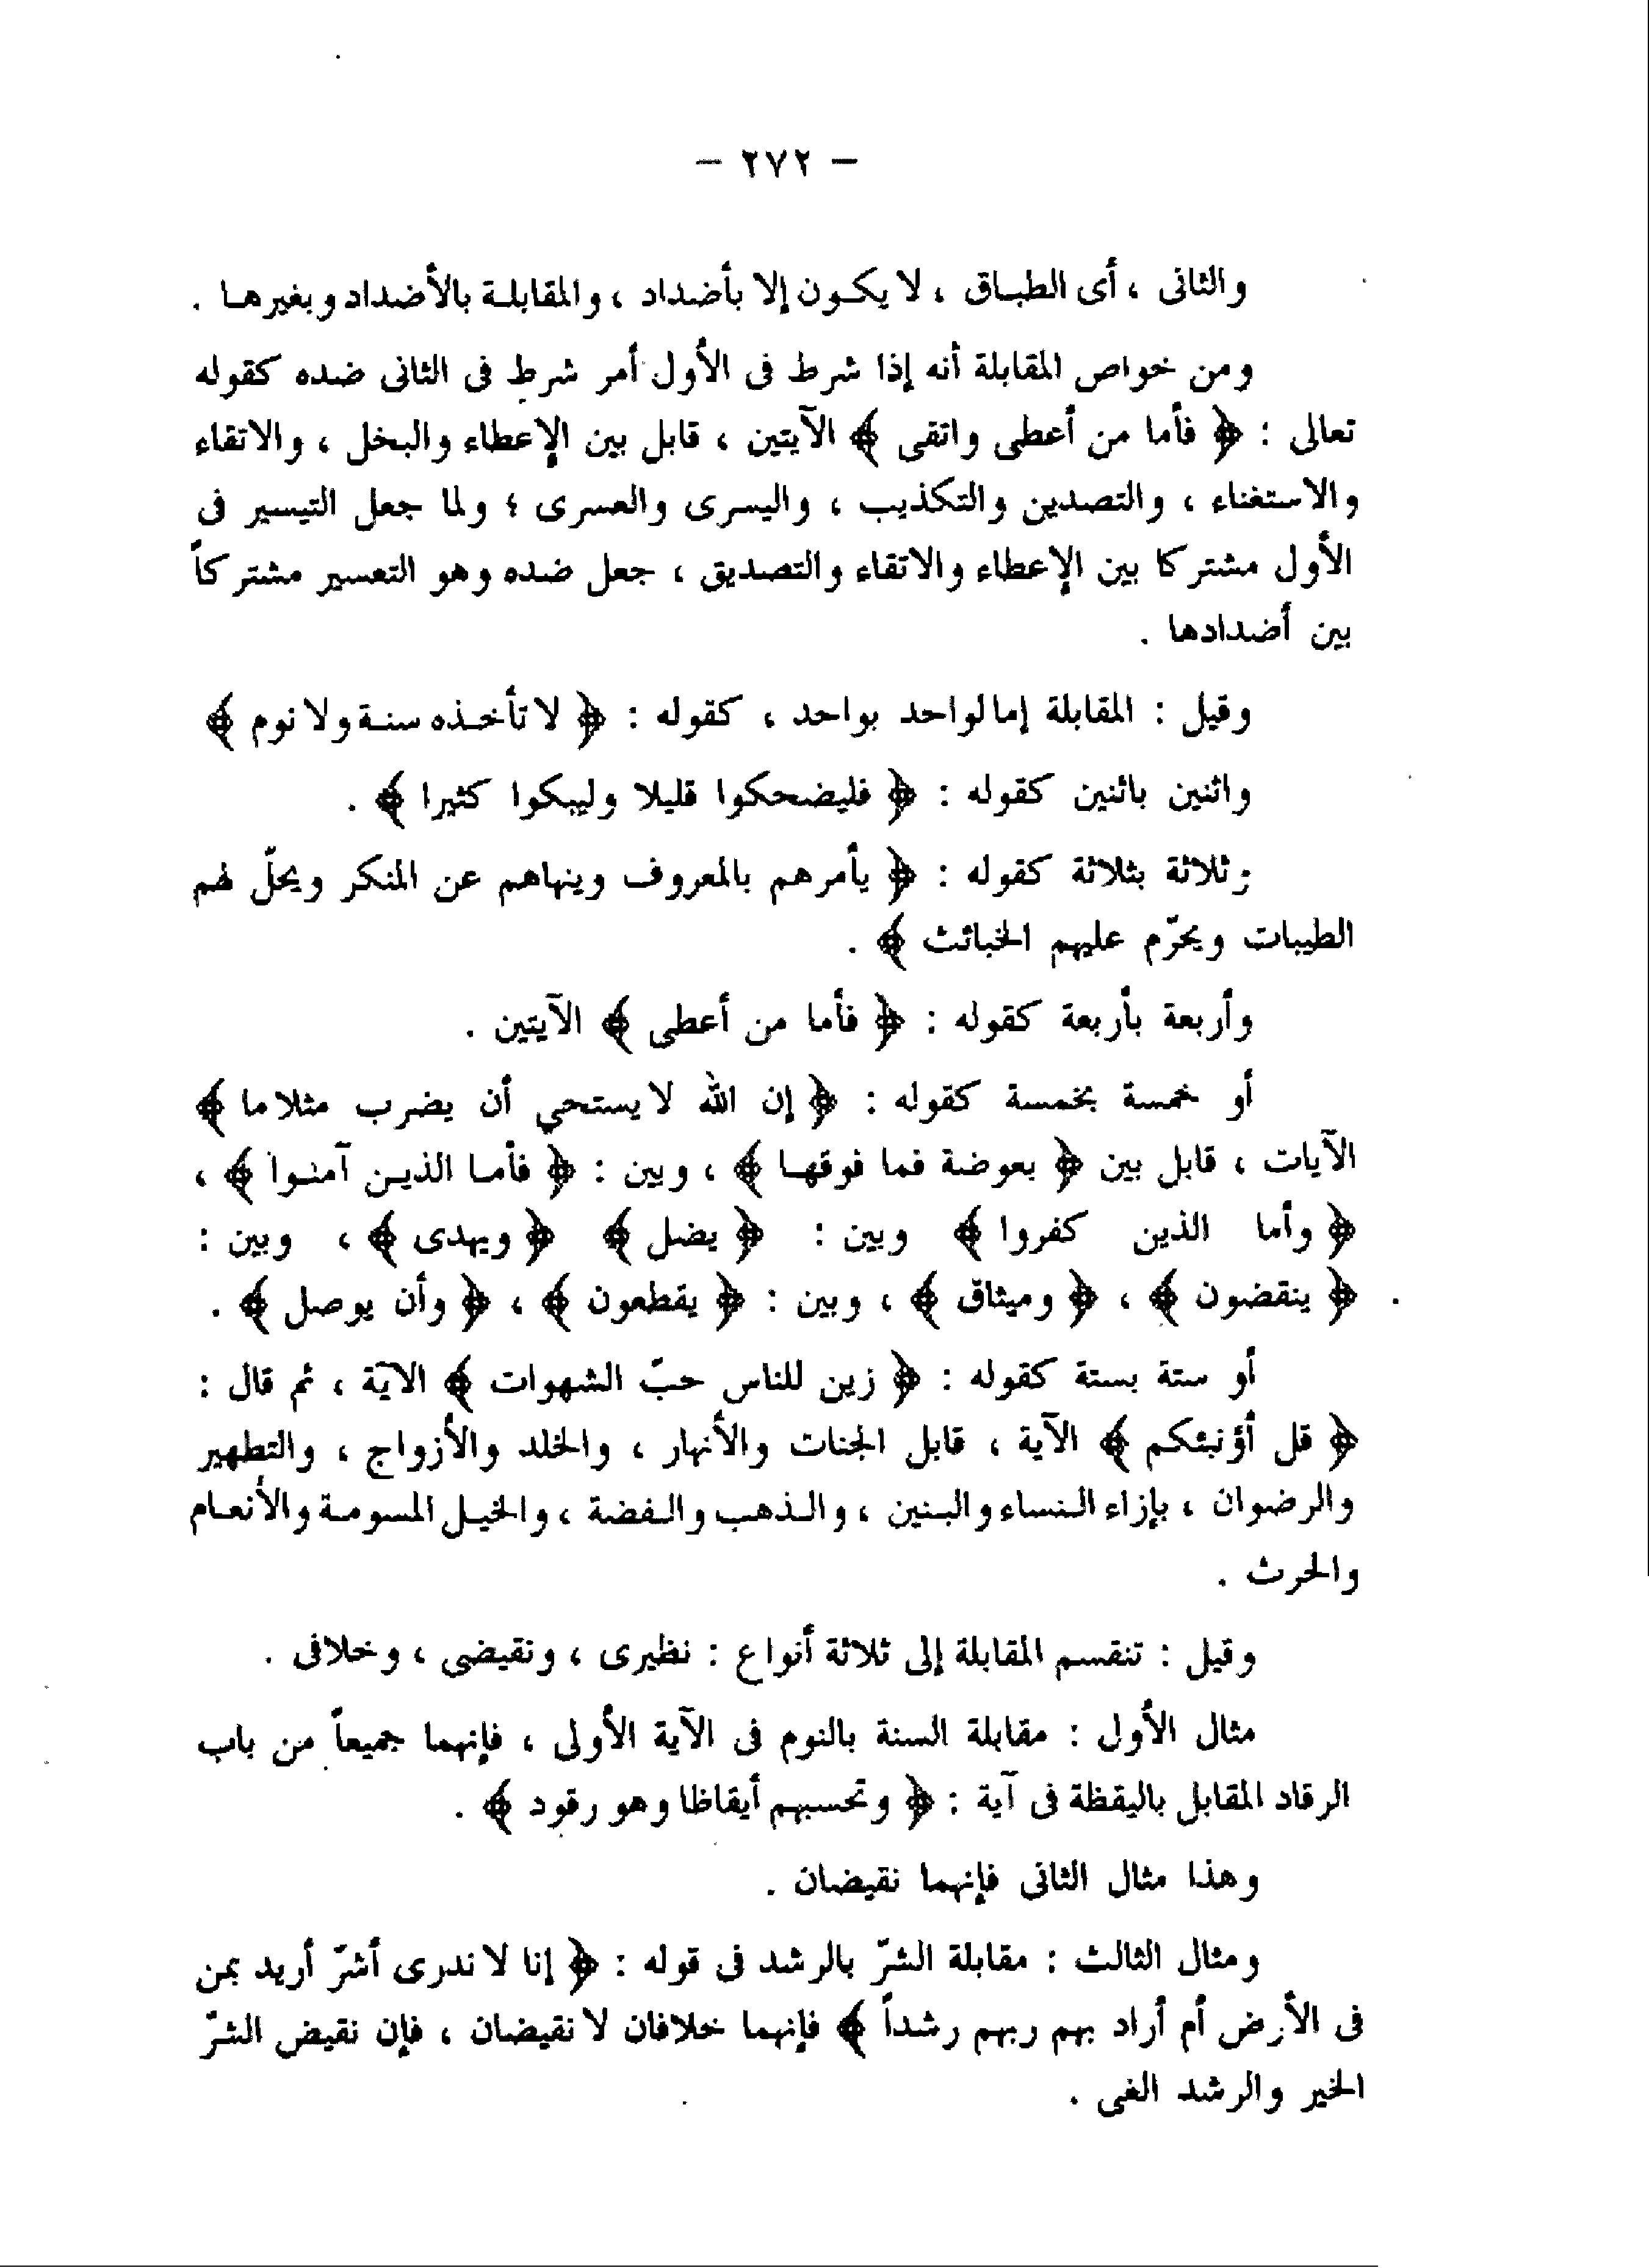 — ٢٧٢ —
والثانى ، أى الطباق ، لا يكون إلا بأضداد ، والمقابلة بالأضداد وبغيرها .
ومن خواص المقابلة أنه إذا شرط فى الأول أمر شرط فى الثانى ضده كقوله
تعالى : ﴿ فأما من أعطى واتقى ﴾ الآيتين ، قابل بين الإعطاء والبخل ، والاتقاء
والاستغناء ، والتصدين والتكذيب ، واليسرى والعسرى ؛ ولما جعل التيسير فى
الأول مشتركا بين الإعطاء والاتقاء والتصديق ، جعل ضده وهو التعسير مشتركاً
بين أضدادها .
وقيل : المقابلة إما لواحد بواحد ، كقوله : ﴿ لا تأخذه سنة ولا نوم ﴾
واثنين باثنين كقوله : ﴿ فليضحكوا قليلا وليبكوا كثيرا ﴾ .
وثلاثة بثلاثة كقوله : ﴿ يأمرهم بالمعروف وينهاهم عن المنكر ويحلّ لهم
الطيبات ويحرّم عليهم الخبائث ﴾ .
وأربعة بأربعة كقوله : ﴿ فأما من أعطى ﴾ الآيتين .
أو خمسة بخمسة كقوله : ﴿ إن الله لا يستحي أن يضرب مثلا ما ﴾
الآيات ، قابل بين ﴿ بعوضة فما فوقها ﴾ ، وبين : ﴿ فأما الذين آمنوا ﴾ ،
﴿ وأما الذين كفروا ﴾ وبين : ﴿ يضل ﴾ ﴿ ويهدى ﴾ ، وبين :
﴿ ينقضون ﴾ ، ﴿ وميثاق ﴾ ، وبين : ﴿ يقطعون ﴾ ، ﴿ وأن يوصل ﴾ .
أو ستة بستة كقوله : ﴿ زين للناس حبّ الشهوات ﴾ الآية ، ثم قال :
﴿ قل أؤنبئكم ﴾ الآية ، قابل الجنات والأنهار ، والخلد والأزواج ، والتطهير
والرضوان ، بإزاء النساء والبنين ، والذهب والفضة ، والخيل المسومة والأنعام
والحرث .
وقيل : تنقسم المقابلة إلى ثلاثة أنواع : نظيرى ، ونقيضى ، وخلافى .
مثال الأول : مقابلة السنة بالنوم فى الآية الأولى ، فإنهما جميعاً من باب
الرقاد المقابل باليقظة فى آية : ﴿ وتحسبهم أيقاظا وهو رقود ﴾ .
وهذا مثال الثانى فإنهما نقيضان .
ومثال الثالث : مقابلة الشرّ بالرشد فى قوله : ﴿ إنا لا ندرى أشرّ أريد بمن
فى الأرض أم أراد بهم ربهم رشداً ﴾ فإنهما خلافان لا نقيضان ، فإن نقيض الشرّ
الخير والرشد الغى .